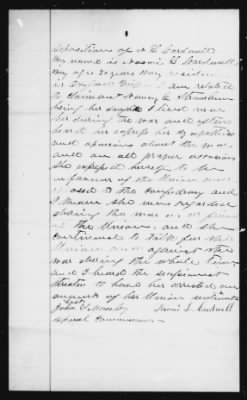 Deposition of N L Cardwell
My name is Naomi L Cardwell
My age is 20 years My residence
is I am related
to claimant Nancy
being her I lived near
her during the war and often
heard her express her sympathies
and opinions about the war
and on all proper occasions
she expressed herself to be
in favour of the Union and
opposed to the Confederacy and
I know she was regarded
during the war as a friend
of the Union, and she
continued to talk for the
Union and against the
war during the whole time
and I heard the secessionists
threaten to have her arrested on
account of her Union sentiments
John Naomi L. Cardwell
Special Commissioner